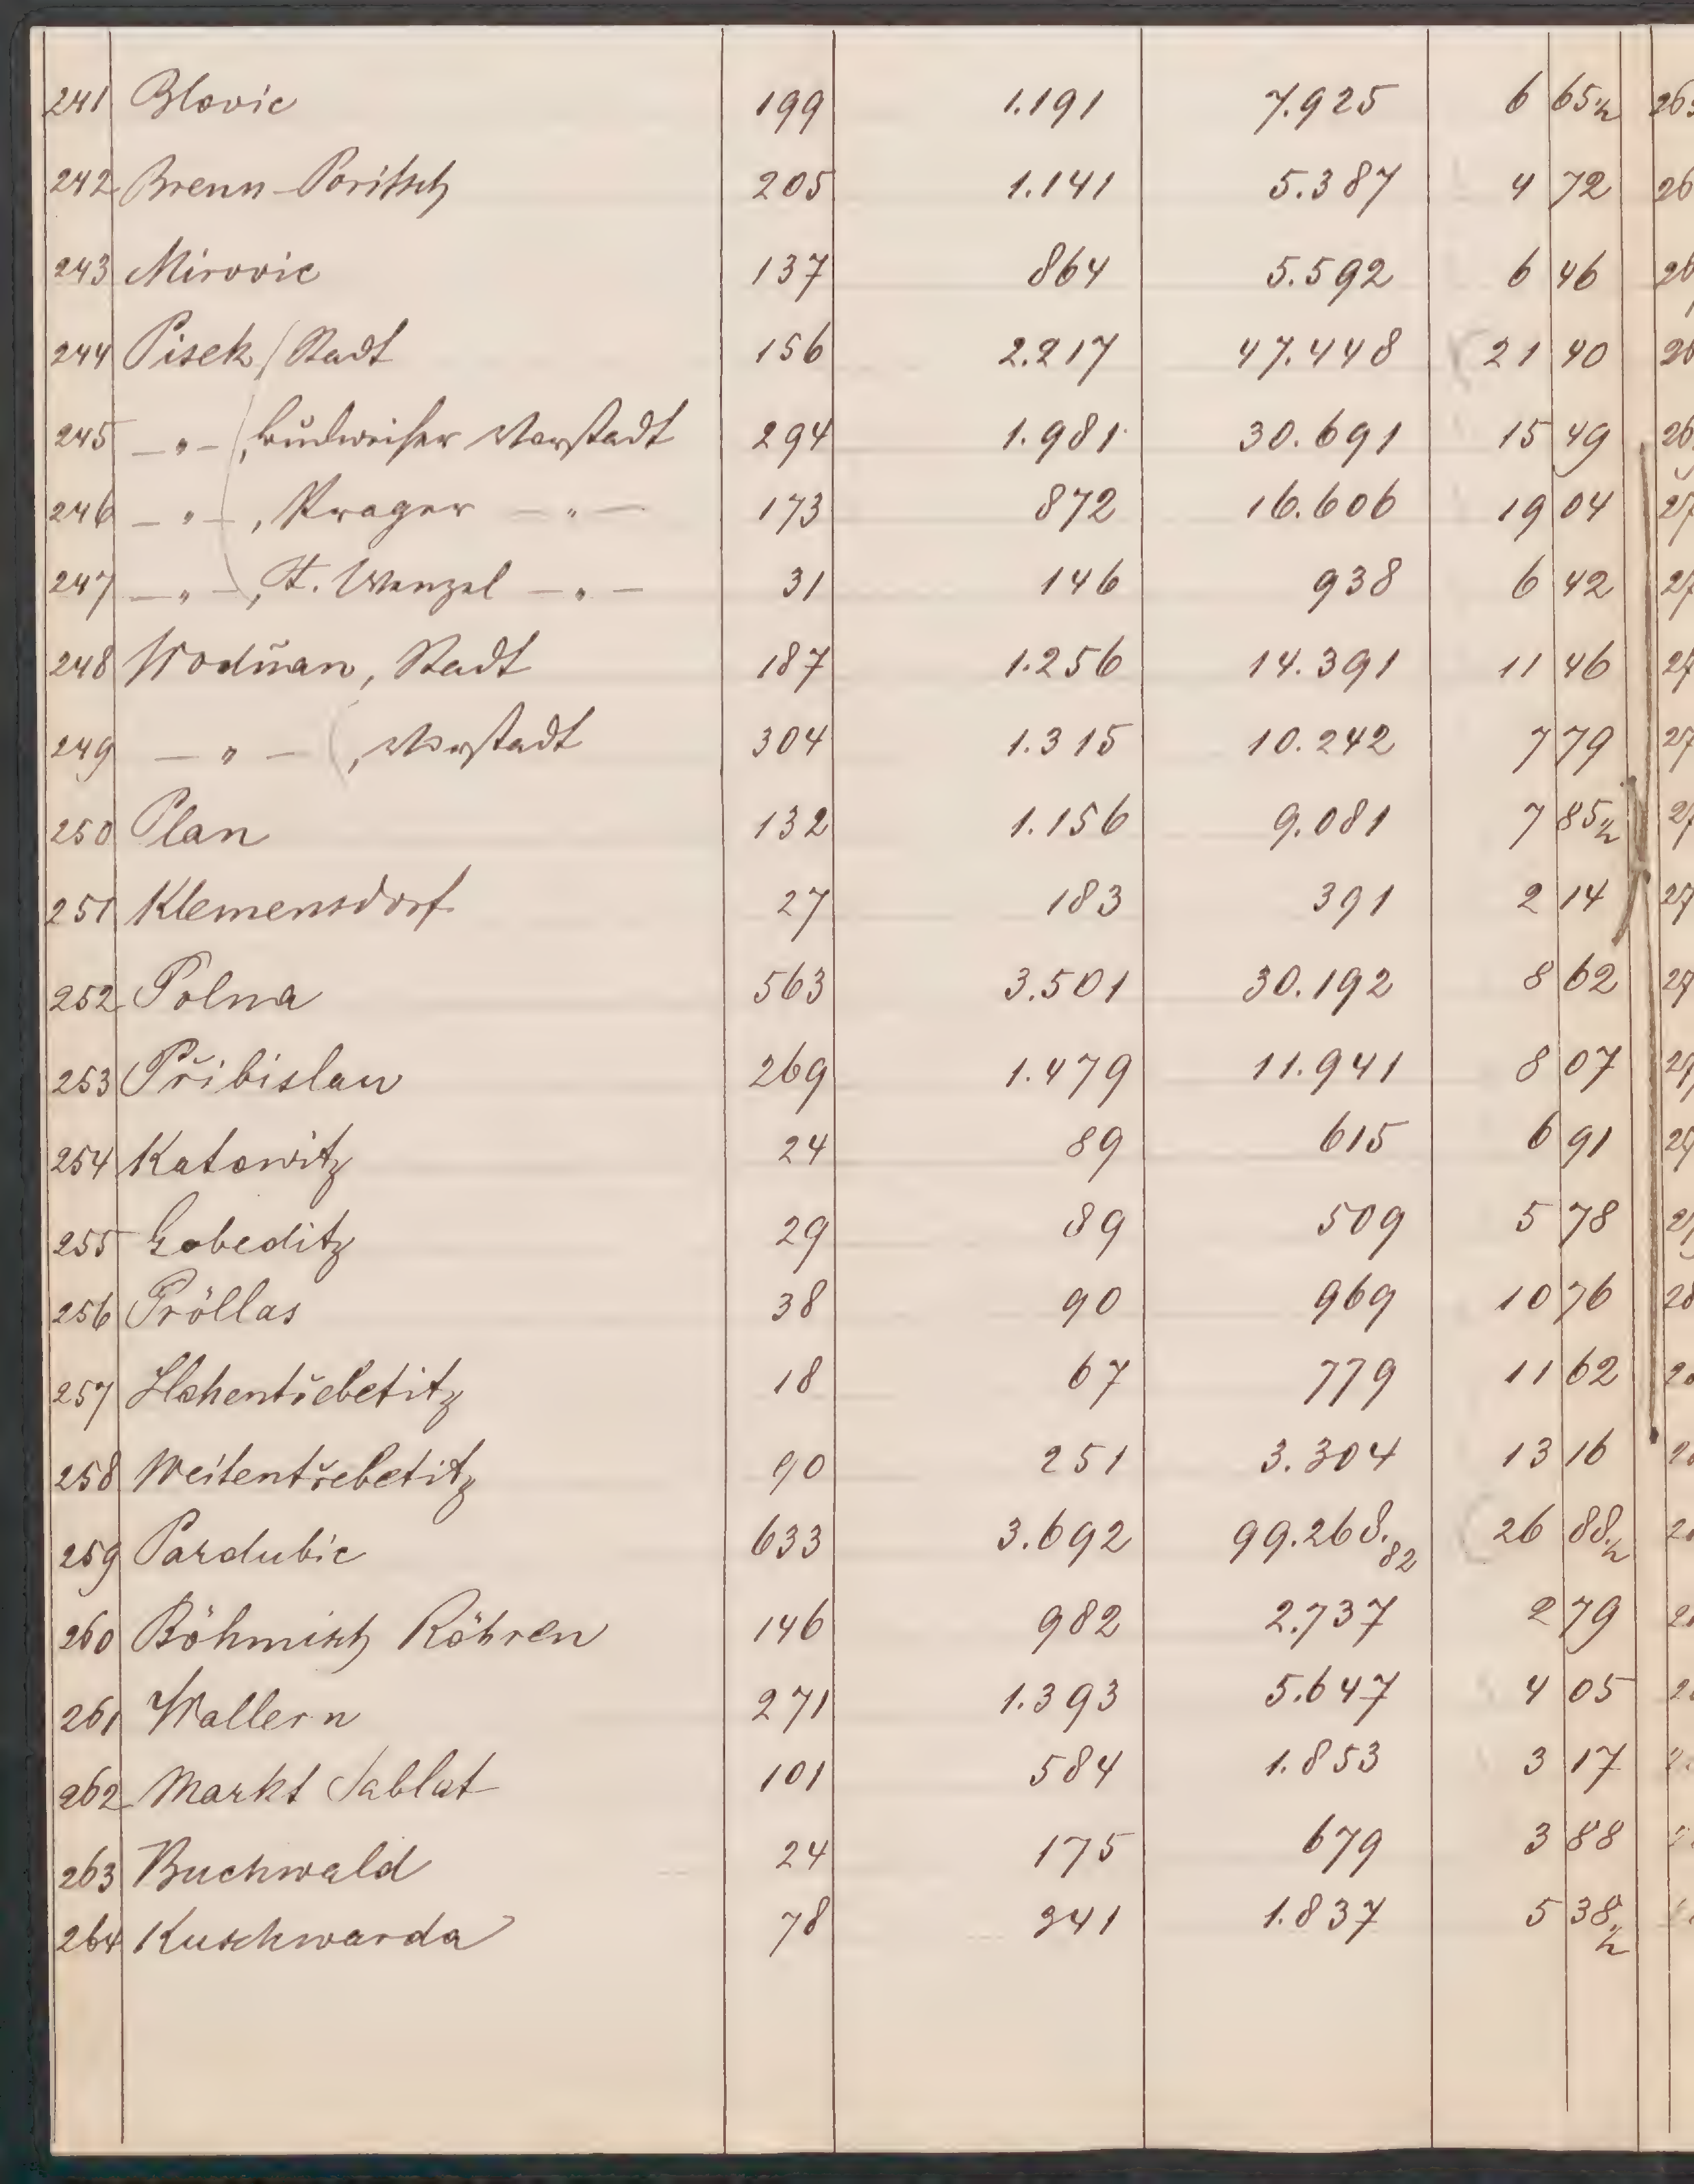 241 Blovic 199 1.191 7.925 6 65 1/2
242 Brenn-Poritsch 205 1.141 5.387 4 72
243 Mirovic 137 864 5.592 6 46
244 Pisek, Stadt 156 2.217 47.448 21 40
245 — „ —, Budweiser Vorstadt 294 1.981 30.691 15 49
246 — „ —, Prager — „ — 173 872 16.606 19 04
247 — „ —, St. Wenzel — „ — 31 146 938 6 42
248 Wodňan, Stadt 187 1.256 14.391 11 46
249 — „ —, Vorstadt 304 1.315 10.242 7 79
250 Plan 132 1.156 9.081 7 85 1/2
251 Klemensdorf 27 183 391 2 14
252 Polna 563 3.501 30.192 8 62
253 Přibislau 269 1.479 11.941 8 07
254 Katowitz 24 89 615 6 91
255 Lobeditz 29 89 509 5 78
256 Pröllas 38 90 969 10 76
257 Hohentřebetitz 18 67 779 11 62
258 Weitentřebetitz 90 251 3.304 13 16
259 Pardubic 633 3.692 99.268.82 26 88 1/2
260 Böhmisch Röhren 146 982 2.737 2 79
261 Wallern 271 1.393 5.647 4 05
262 Markt Sablat 101 584 1.853 3 17
263 Buchwald 24 175 679 3 88
264 Kuschwarda 78 341 1.837 5 38 1/2